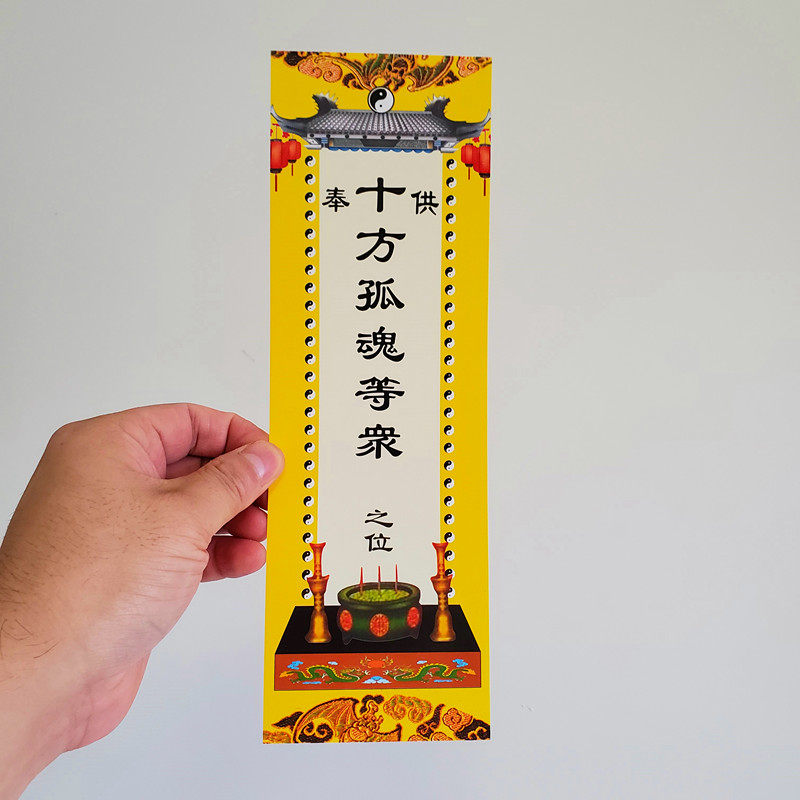 供奉
十方孤魂等衆
之位